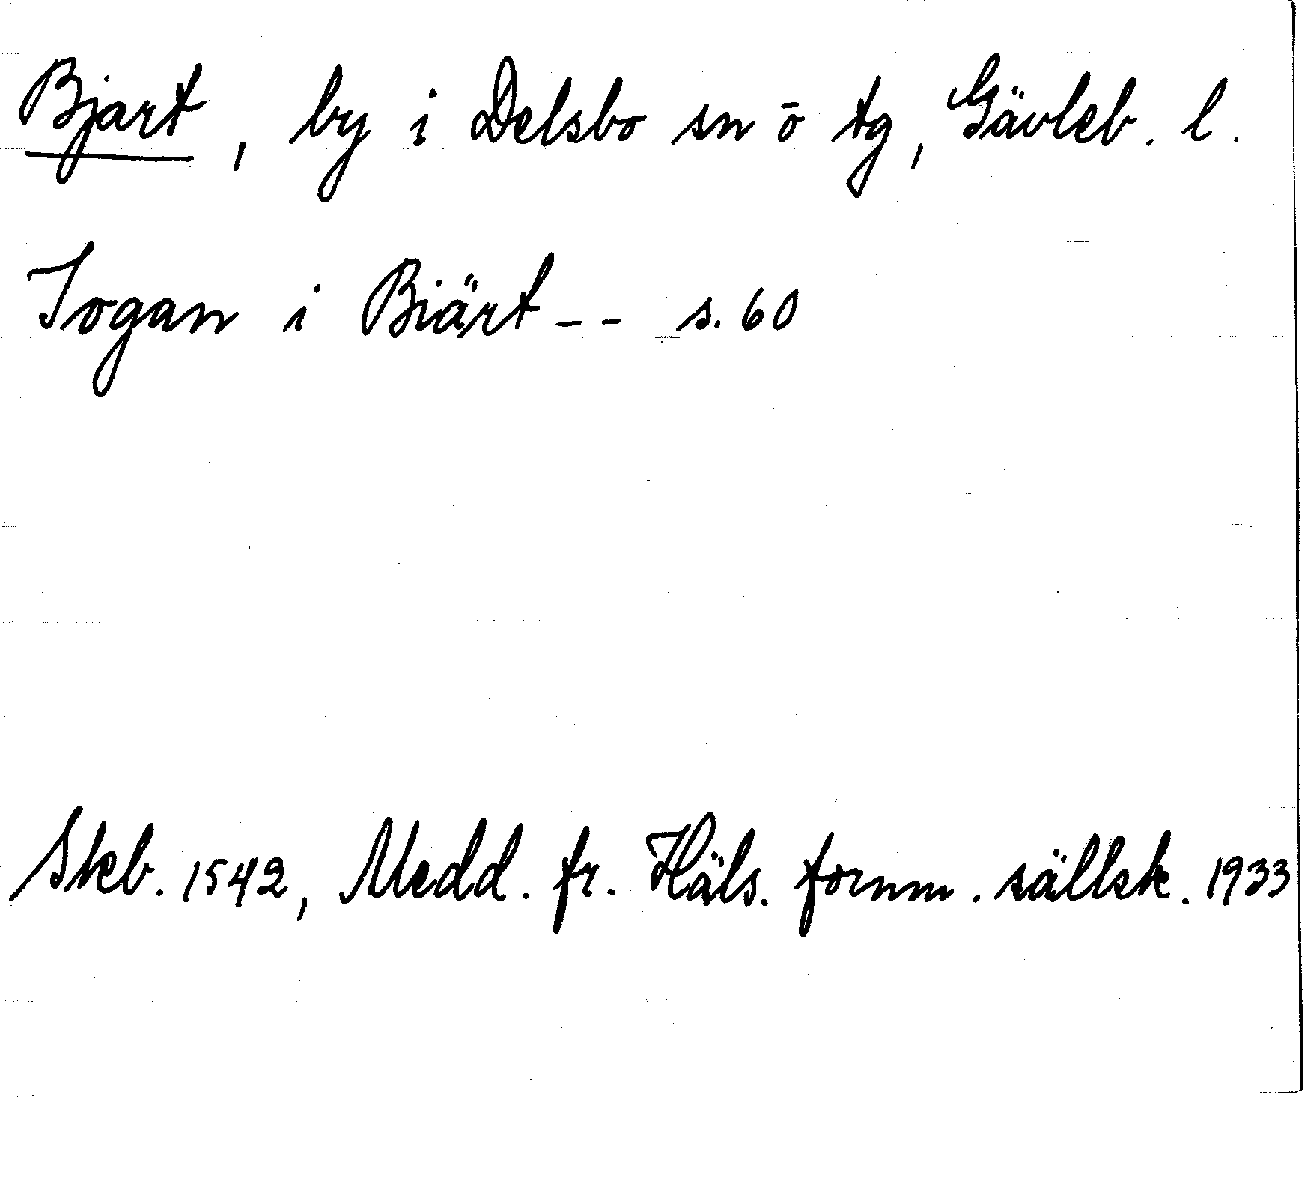 Bjart, by i Delsbo sn ō tg, Gävleb. l.
Jogan i Biärt -- s. 60
Skb. 1542, Medd. fr. Häls. fornm. sällsk. 1933